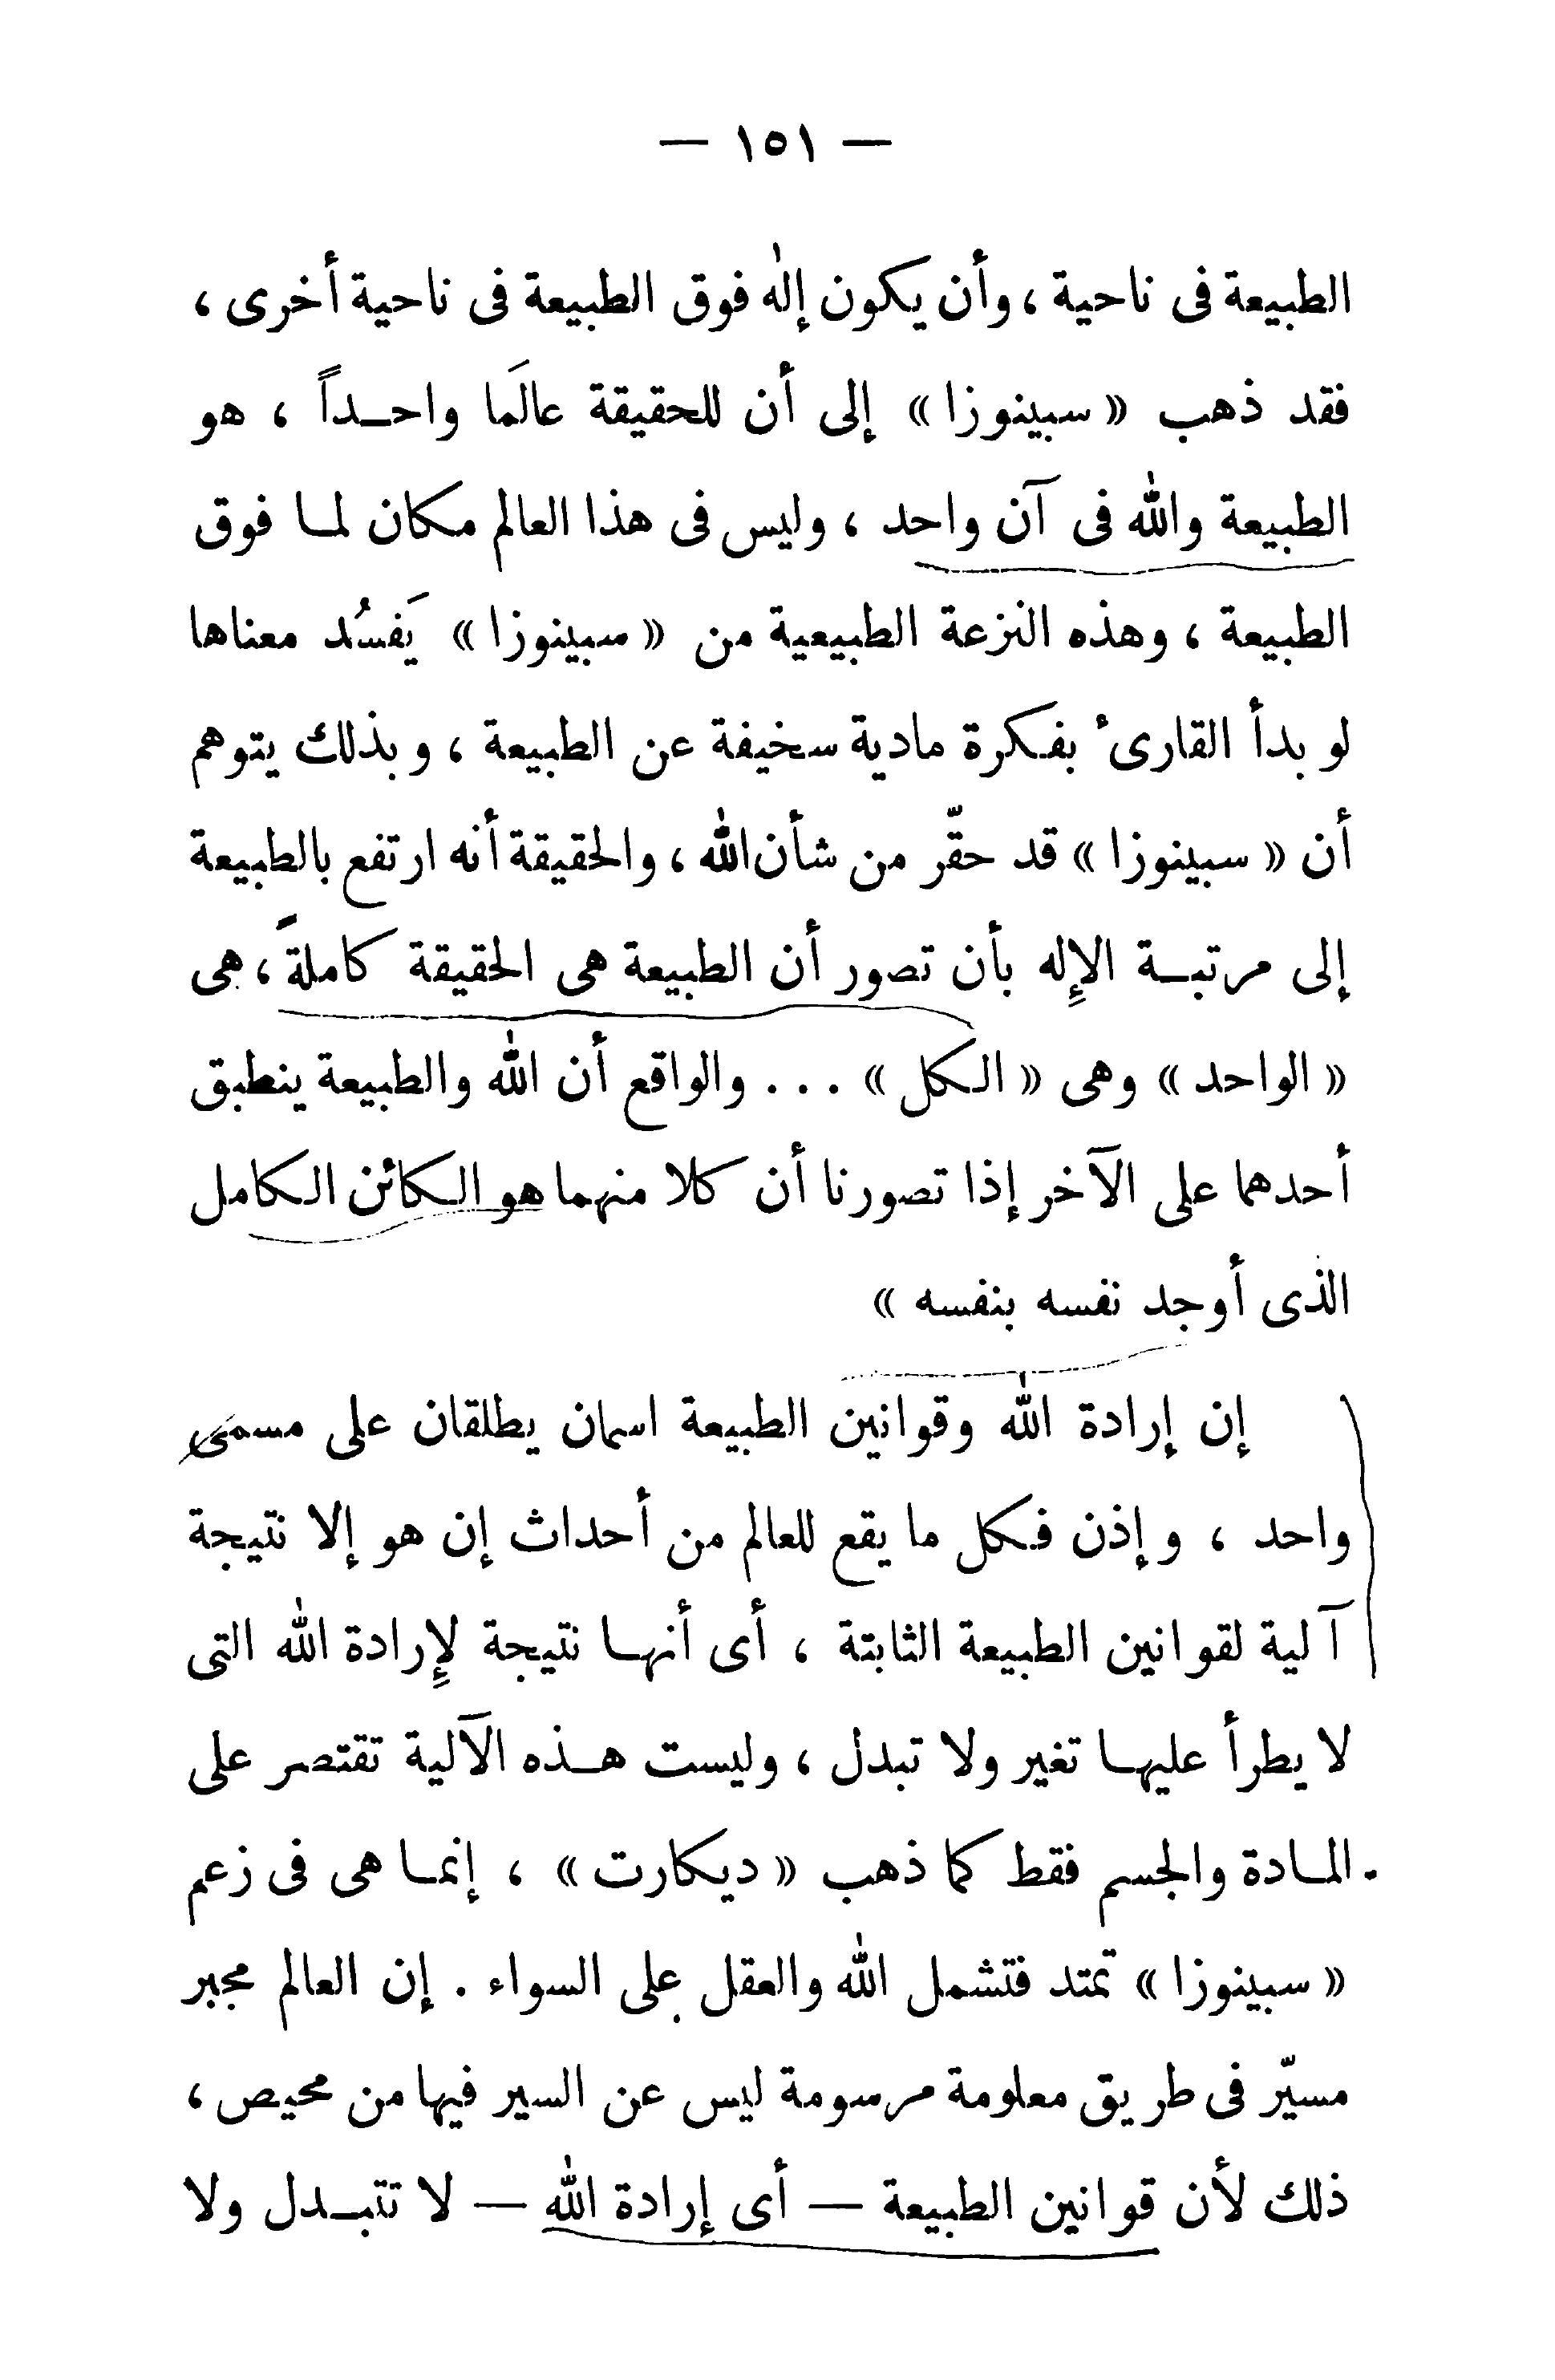 — ١٥١ —
الطبيعة فى ناحية ، وأن يكون إلٰه فوق الطبيعة فى ناحية أخرى ،
فقد ذهب « سبينوزا » إلى أن للحقيقة عالَما واحـداً ، هو
الطبيعة والله فى آن واحد ، وليس فى هذا العالم مكان لمـا فوق
الطبيعة ، وهذه النزعة الطبيعية من « سبينوزا » يَفسُد معناها
لو بدأ القارئ بفكرة مادية سخيفة عن الطبيعة ، وبذلك يتوهم
أن « سبينوزا » قد حقّر من شأن الله ، والحقيقة أنه ارتفع بالطبيعة
إلى مرتبـة الإِله بأن تصور أن الطبيعة هى الحقيقة كاملةً ، هى
« الواحد » وهى « الكل » . . . والواقع أن الله والطبيعة ينطبق
أحدهما على الآخر إذا تصورنا أن كلا منهما هو الكائن الكامل
الذى أوجد نفسه بنفسه »
إن إرادة الله وقوانين الطبيعة اسمان يطلقان على مسمى
واحد ، وإذن فكل ما يقع للعالم من أحداث إن هو إلا نتيجة
آلية لقوانين الطبيعة الثابتة ، أى أنهـا نتيجة لإِرادة الله التى
لا يطرأ عليهـا تغير ولا تبدل ، وليست هـذه الآلية تقتصر على
المـادة والجسم فقط كما ذهب « ديكارت » ، إنمـا هى فى زعم
« سبينوزا » تمتد فتشمل الله والعقل على السواء . إن العالم مجبر
مسيّر فى طريق معلومة مرسومة ليس عن السير فيها من محيص ،
ذلك لأن قوانين الطبيعة — أى إرادة الله — لا تتبـدل ولا